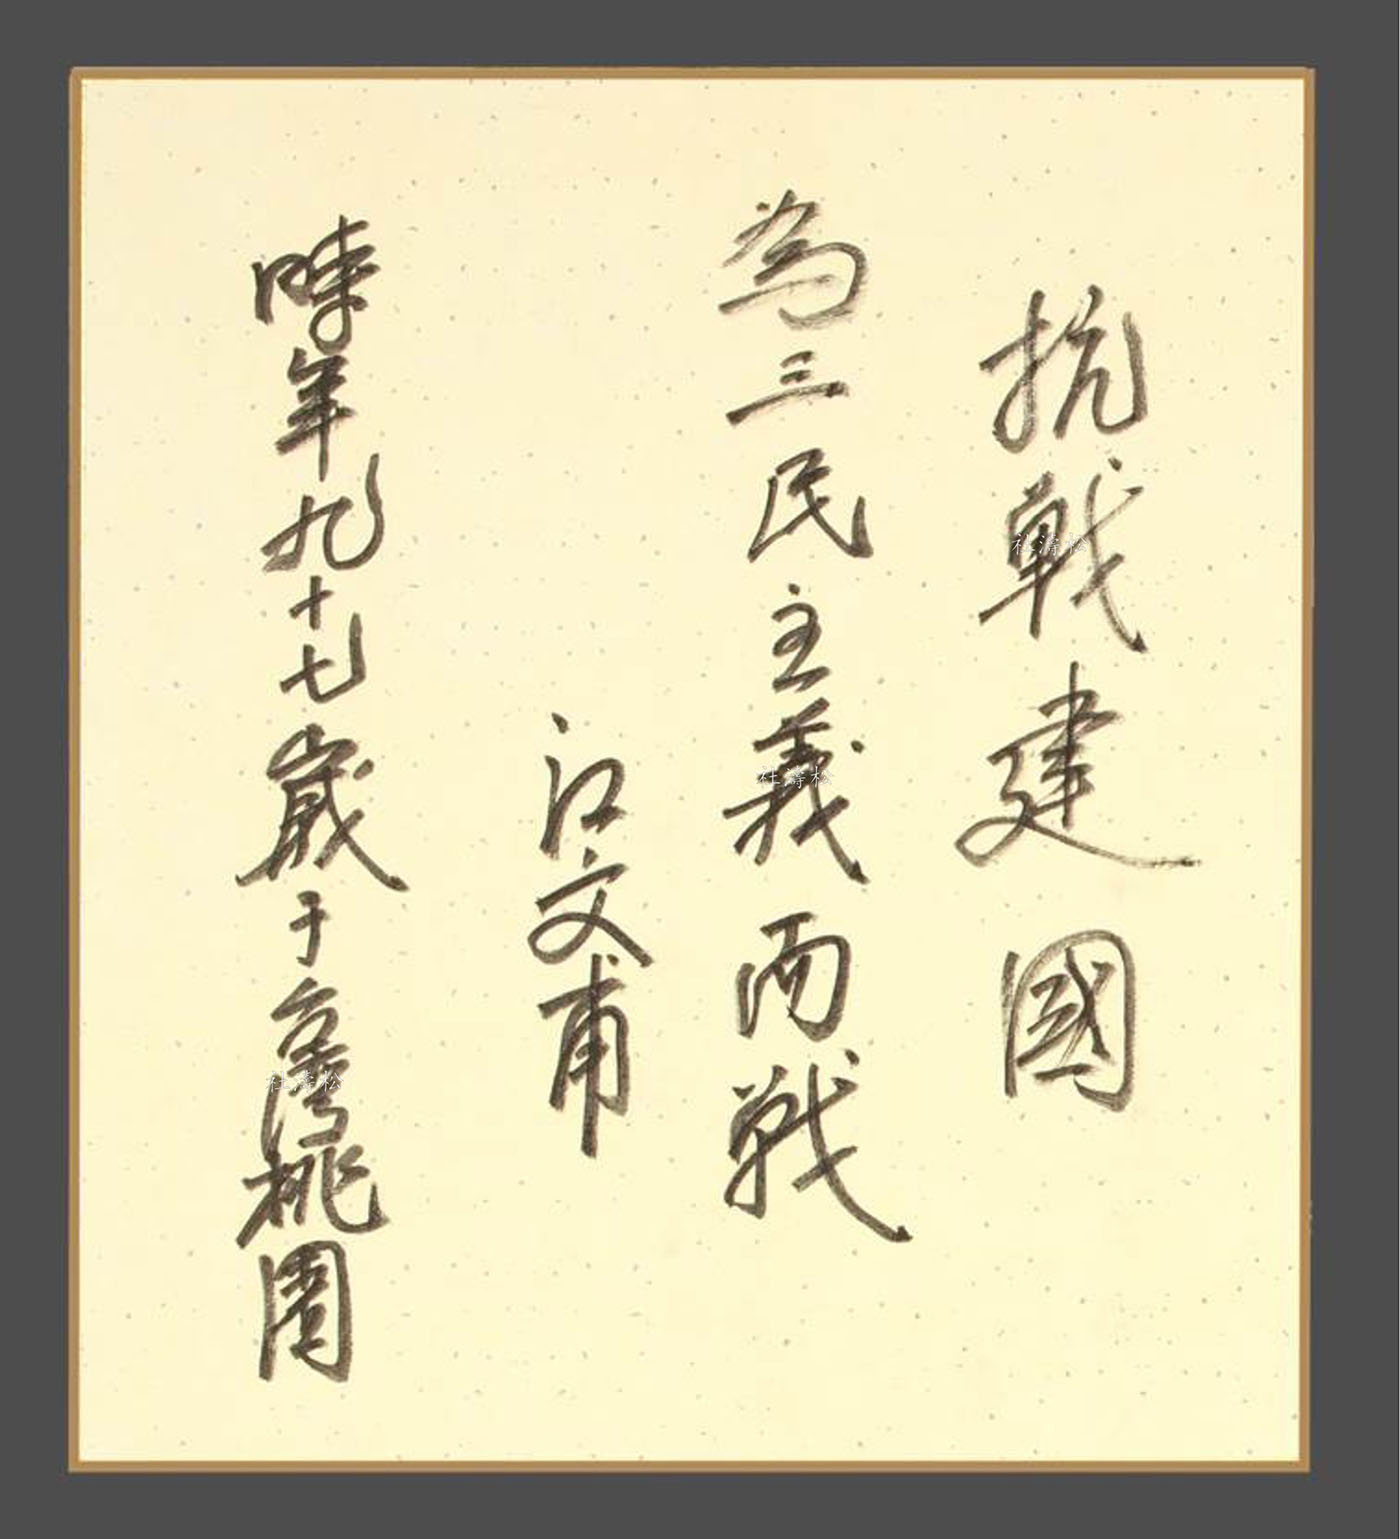 抗戰建國
為三民主義而戰
江文甫
時年九十七歲于台灣桃園
杜濤松
杜濤松
杜濤松